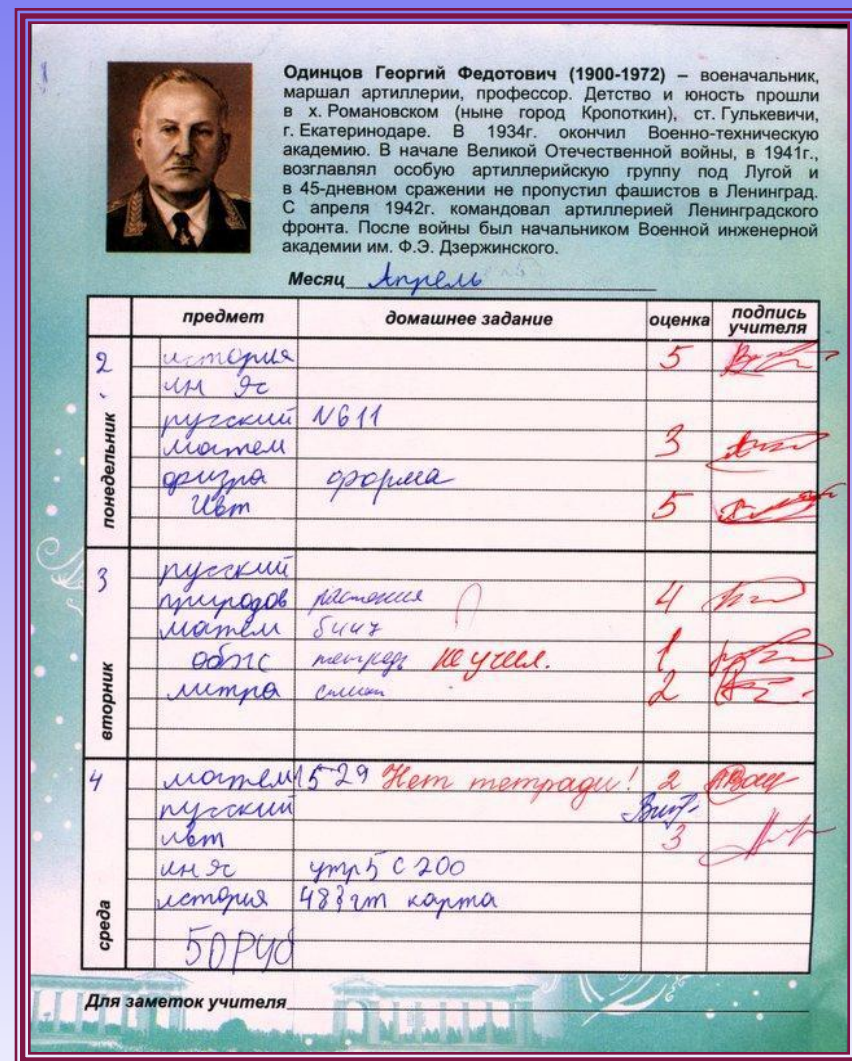 Одинцов Георгий Федотович (1900-1972) – военачальник,
маршал артиллерии, профессор. Детство и юность прошли
в х. Романовском (ныне город Кропоткин), ст. Гулькевичи,
г. Екатеринодаре. В 1934г. окончил Военно-техническую
академию. В начале Великой Отечественной войны, в 1941г.,
возглавлял особую артиллерийскую группу под Лугой и
в 45-дневном сражении не пропустил фашистов в Ленинград.
С апреля 1942г. командовал артиллерией Ленинградского
фронта. После войны был начальником Военной инженерной
академии им. Ф.Э. Дзержинского.
Месяц Апрель
предмет домашнее задание оценка подпись учителя
понедельник
2 история 5
ин яс
русский N611
матем 3
физра форма
ивт 5
вторник
3 русский
природов растения 4
матем
обжс тетрадь не учил. 1
литра 2
среда
4 матем 529 Нет тетради! 2
русский
ивт 3
ин яс упр5 с 200
история 48 карта
50 РУб
Для заметок учителя